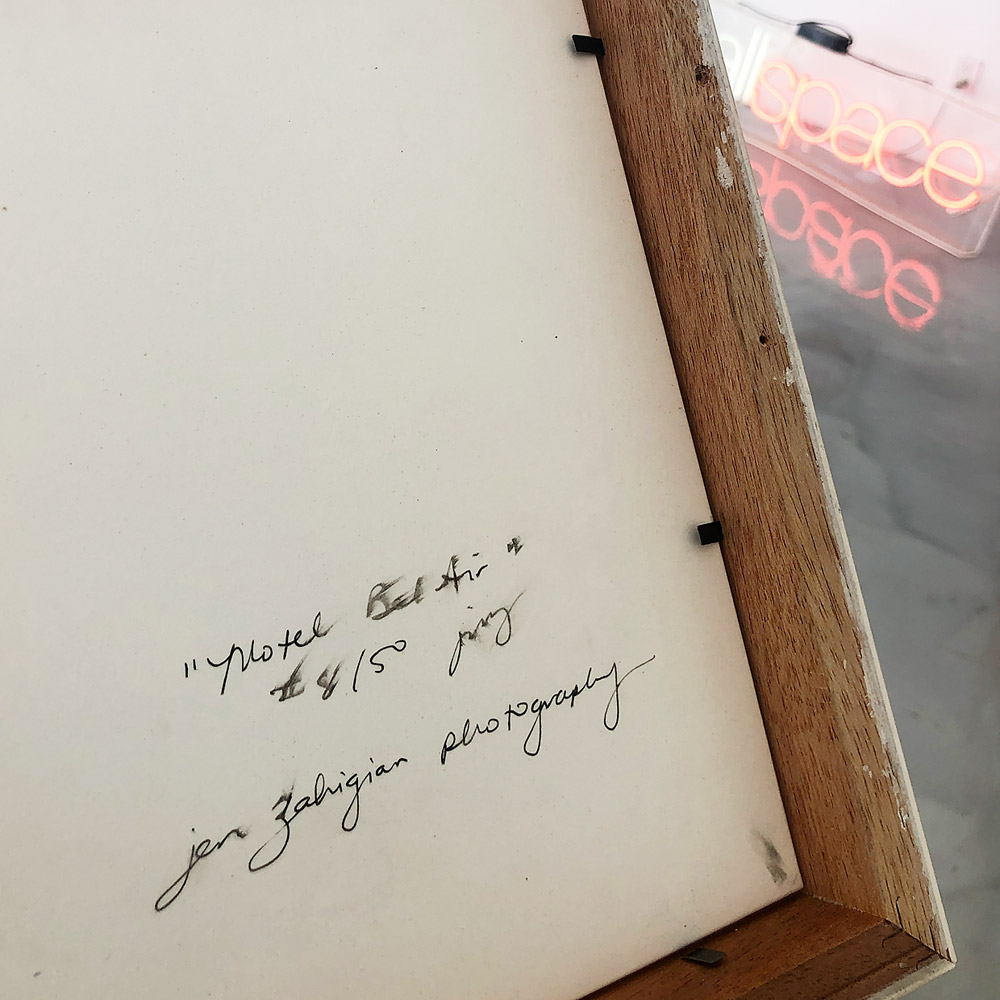 all space
"Motel Bel Air"
#8/50
jen zahigian photography